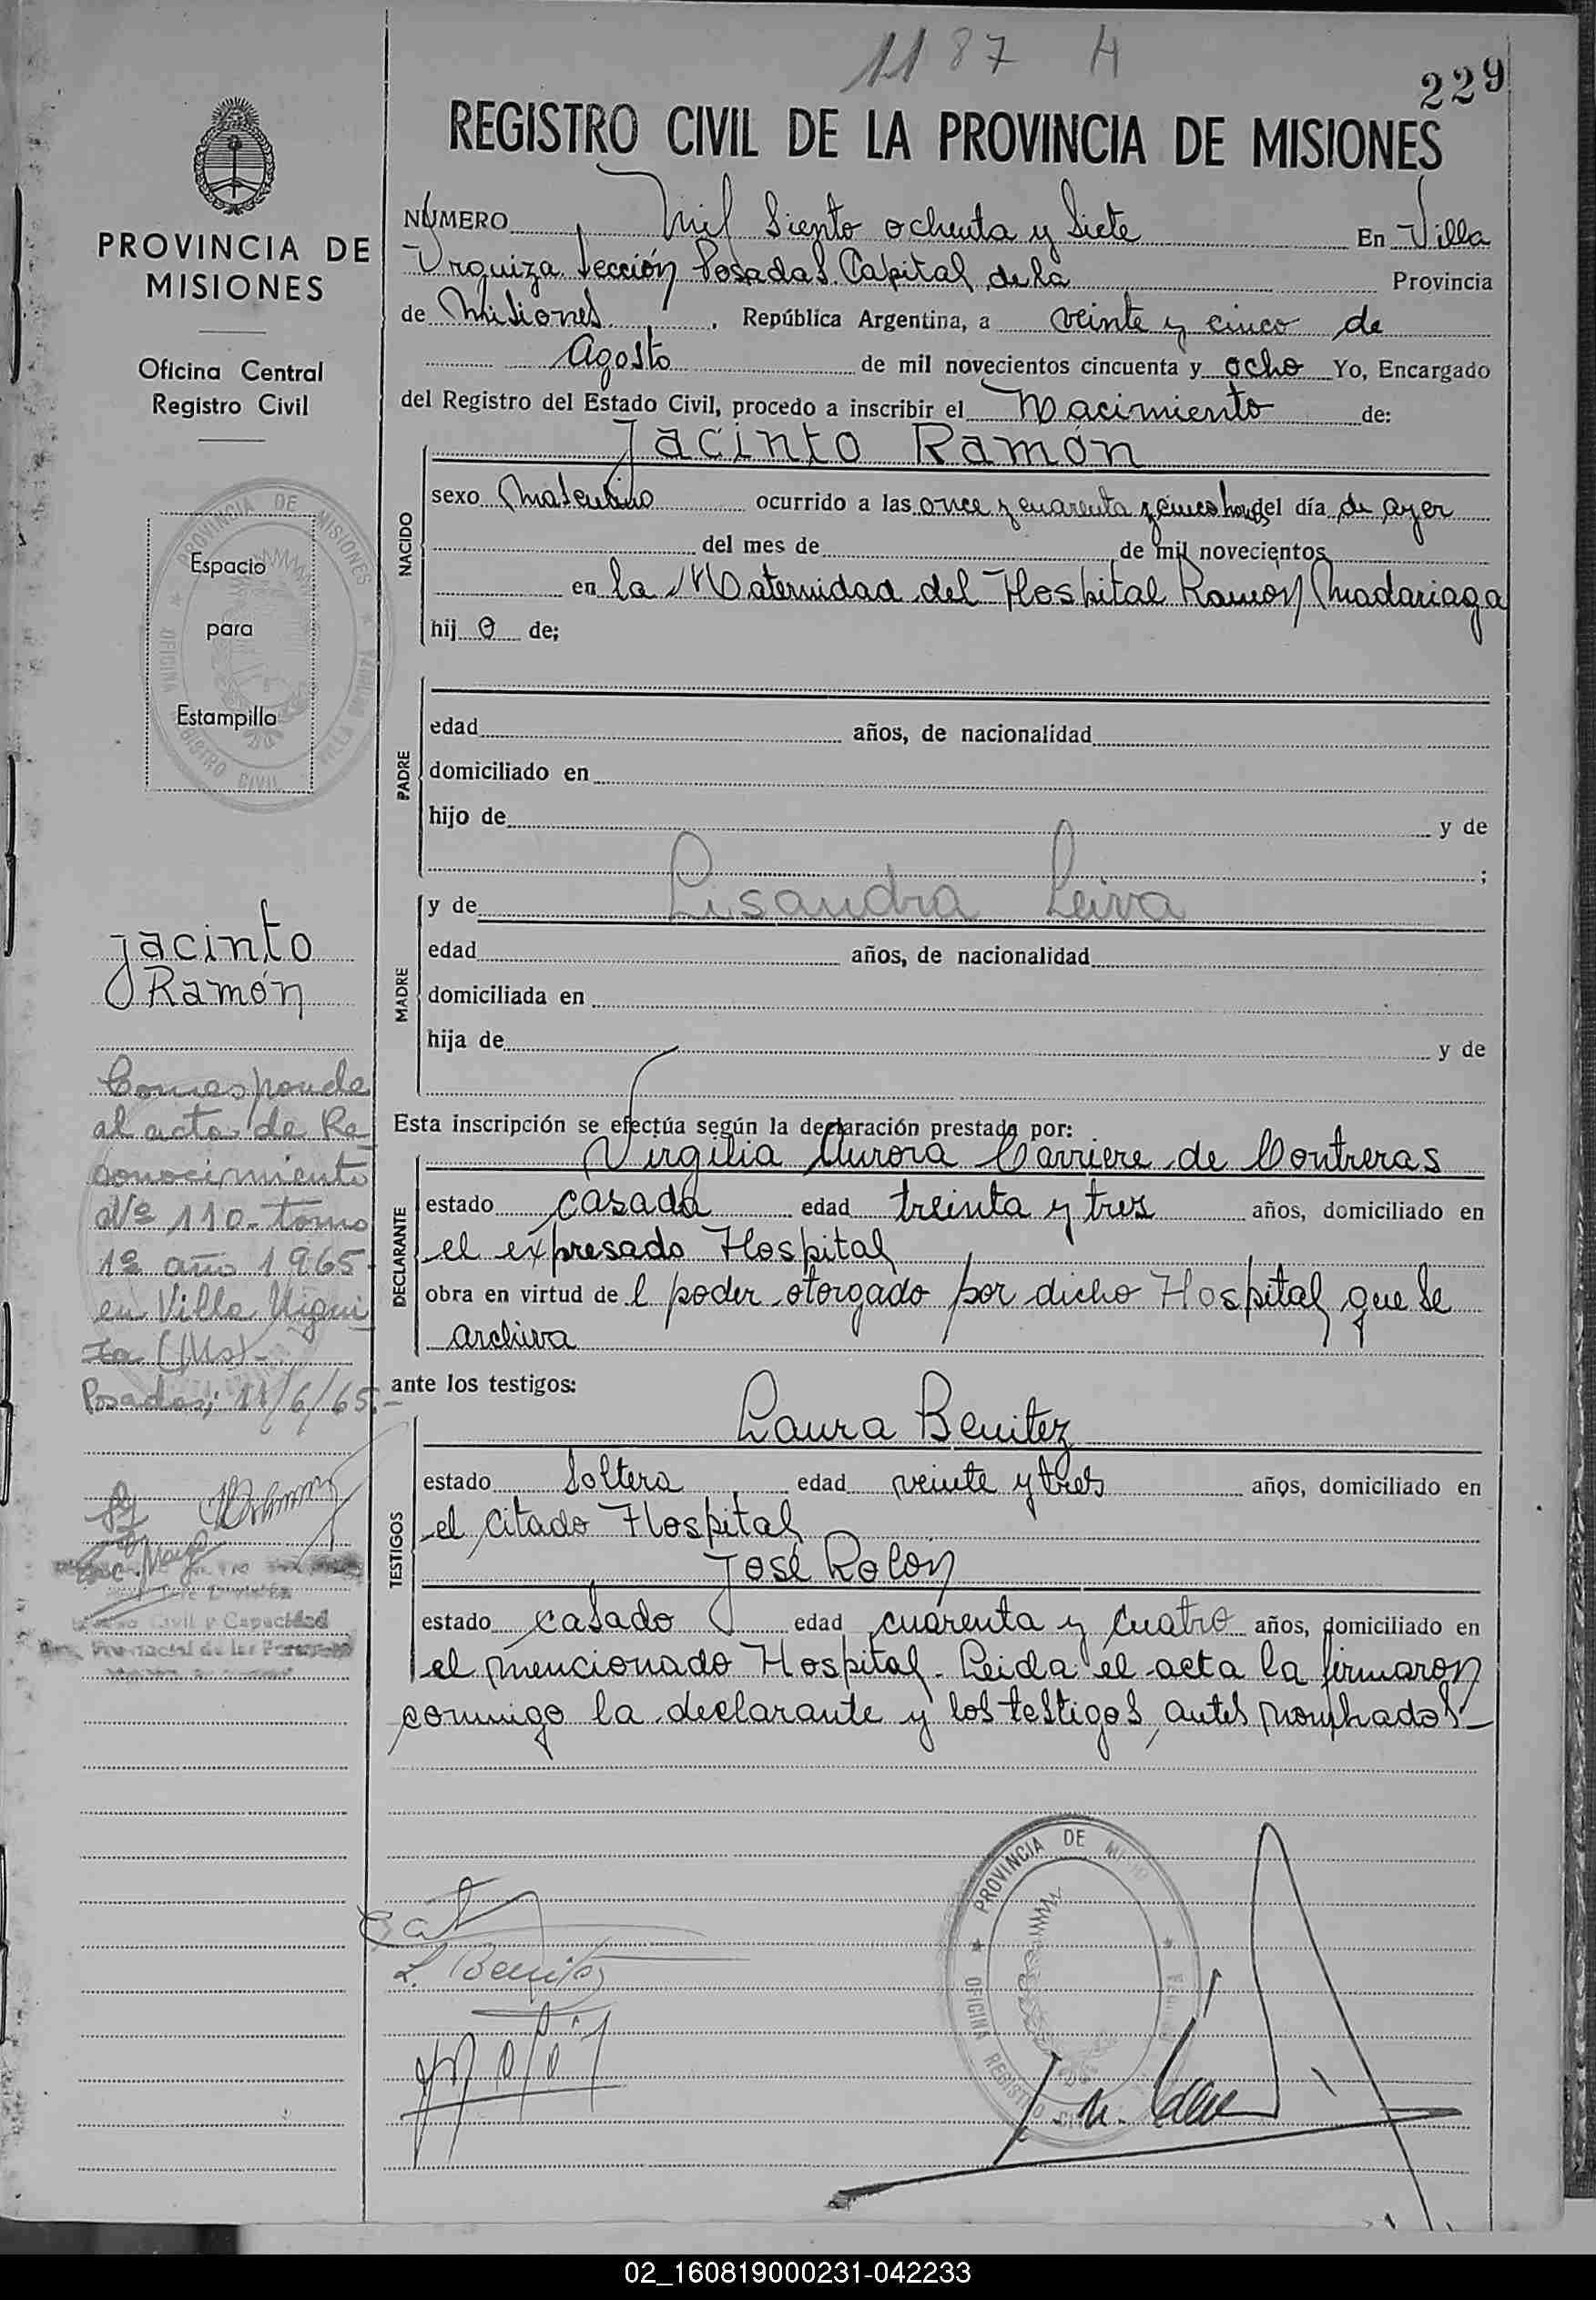 1187 H
229
REGISTRO CIVIL DE LA PROVINCIA DE MISIONES
PROVINCIA DE
MISIONES
Oficina Central
Registro Civil
PROVINCIA DE MISIONES
OFICINA REGISTRO CIVIL
VILLA URQUIZA
Espacio
para
Estampilla
Jacinto
Ramón
Corresponde
al acta de Re
conocimiento
Nº 110 - tomo
1º año 1965-
en Villa Urqui
za (Ms)-
Posadas; 11/6/65.-
Civil y Capacidad
Provincial de las Personas
NÚMERO Mil Siento ochenta y Siete En Villa
Urquiza Sección Posadas Capital de la Provincia
de Misiones, República Argentina, a veinte y cinco de
Agosto de mil novecientos cincuenta y ocho Yo, Encargado
del Registro del Estado Civil, procedo a inscribir el Nacimiento de:
NACIDO
Jacinto Ramón
sexo Masculino ocurrido a las once y cuarenta y cinco horas del día de ayer
del mes de de mil novecientos
en la Maternidad del Hospital Ramón Madariaga
hij o de;
PADRE
edad años, de nacionalidad
domiciliado en
hijo de y de
;
MADRE
y de Lisandra Leiva
edad años, de nacionalidad
domiciliada en
hija de y de
Esta inscripción se efectúa según la declaración prestada por:
DECLARANTE
Virgilia Aurora Carriere de Contreras
estado casada edad treinta y tres años, domiciliado en
el expresado Hospital
obra en virtud de l poder otorgado por dicho Hospital que se
archiva
ante los testigos:
TESTIGOS
Laura Benitez
estado Soltera edad veinte y tres años, domiciliado en
el citado Hospital
José Rolón
estado casado edad cuarenta y cuatro años, domiciliado en
el mencionado Hospital. Leida el acta la firmaron
conmigo la declarante y los testigos antes nombrados-
L. Benitez
PROVINCIA DE
OFICINA REGISTRO
02_160819000231-042233